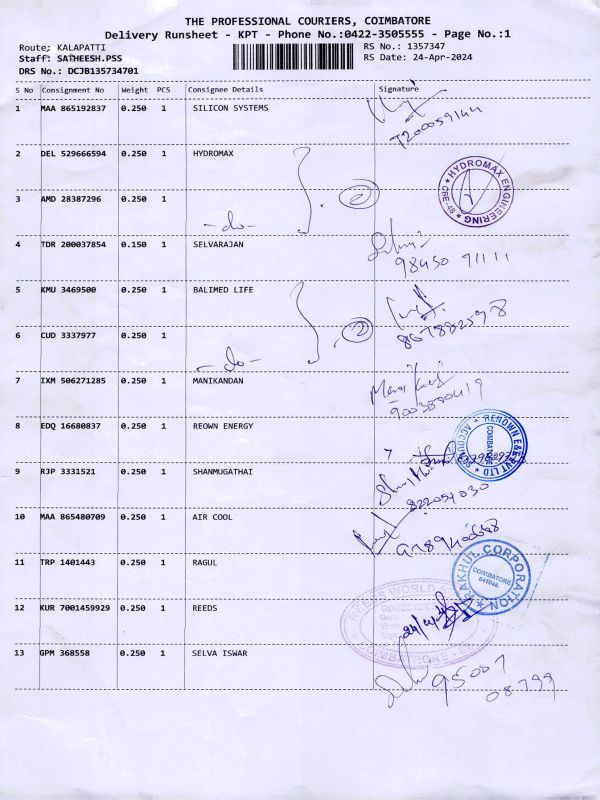 THE PROFESSIONAL COURIERS, COIMBATORE
Delivery Runsheet - KPT - Phone No.:0422-3505555 - Page No.:1
Route; KALAPATTI
RS No.: 1357347
Staff: SATHEESH.PSS
RS Date: 24-Apr-2024
DRS No.: DCJB135734701
S No Consignment No Weight PCS Consignee Details Signature
1 MAA 865192837 0.250 1 SILICON SYSTEMS
2 DEL 529666594 0.250 1 HYDROMAX
HYDROMAX ENGINEERING
CBE-48
3 AMD 28387296 0.250 1
-do-
2
4 TDR 200037854 0.150 1 SELVARAJAN
98430 91111
5 KMU 3469500 0.250 1 BALIMED LIFE
6 CUD 3337977 0.250 1
-do-
2
7 IXM 506271285 0.250 1 MANIKANDAN
8 EDQ 16680837 0.250 1 REOWN ENERGY
COIMBATORE
9 RJP 3331521 0.250 1 SHANMUGATHAI
822054030
10 MAA 865480709 0.250 1 AIR COOL
11 TRP 1401443 0.250 1 RAGUL
RAKHUL CORPORATION
COIMBATORE
12 KUR 7001459929 0.250 1 REEDS
REEDS WORLD
13 GPM 368558 0.250 1 SELVA ISWAR
95007
08799